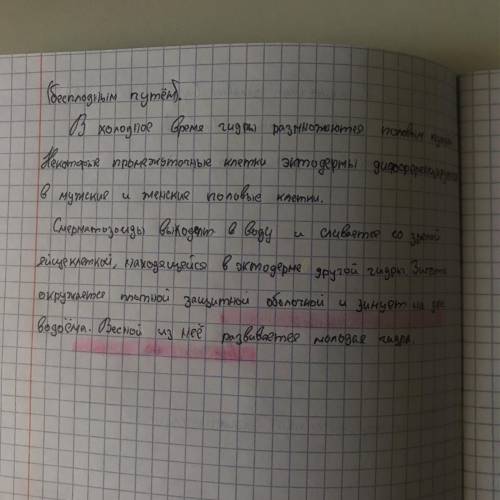 (бесплодным путём).
В холодное время гидры размножаются половым путём
Некоторые промежуточные клетки эктодермы дифференцируются
в мужские и женские половые клетки.
Сперматозоиды выходят в воду и сливается со зрелой
яйцеклеткой, находящейся в эктодерме другой гидры. Зигота
окружается плотной защитной оболочкой и зимует на дне
водоёма. Весной из неё развивается молодая гидра.